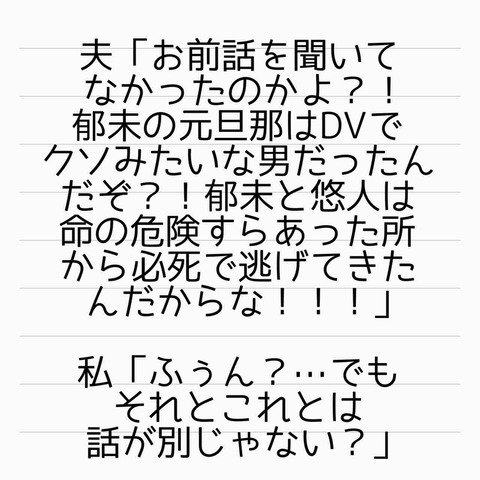 夫「お前話を聞いて
なかったのかよ？！
郁未の元旦那はDVで
クソみたいな男だったん
だぞ？！郁未と悠人は
命の危険すらあった所
から必死で逃げてきた
んだからな！！！」
私「ふぅん？…でも
それとこれとは
話が別じゃない？」